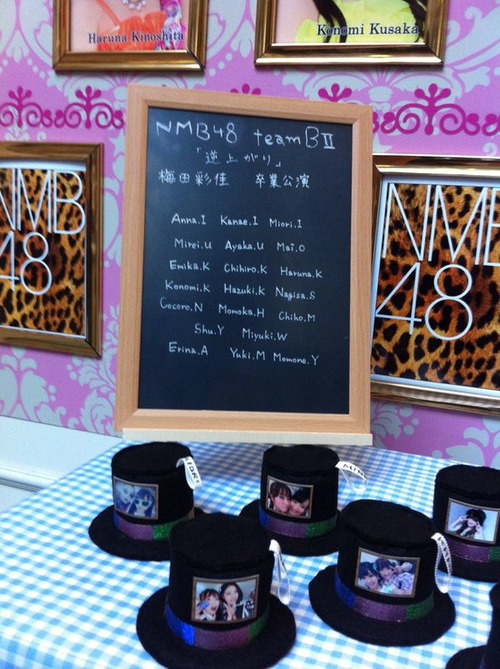 Haruna Kinoshita
Konomi Kusaka
NMB48 teamBⅡ
「逆上がり」
梅田彩佳 卒業公演
Anna.I Kanae.I Miori.I
Mirei.U Ayaka.U Mai.O
Emika.K Chihiro.K Haruna.K
Konomi.K Hazuki.K Nagisa.S
Cocoro.N Momoka.H Chiho.M
Shu.Y Miyuki.W
Erina.A Yuki.M Momone.Y
NMB
48
NMB
48